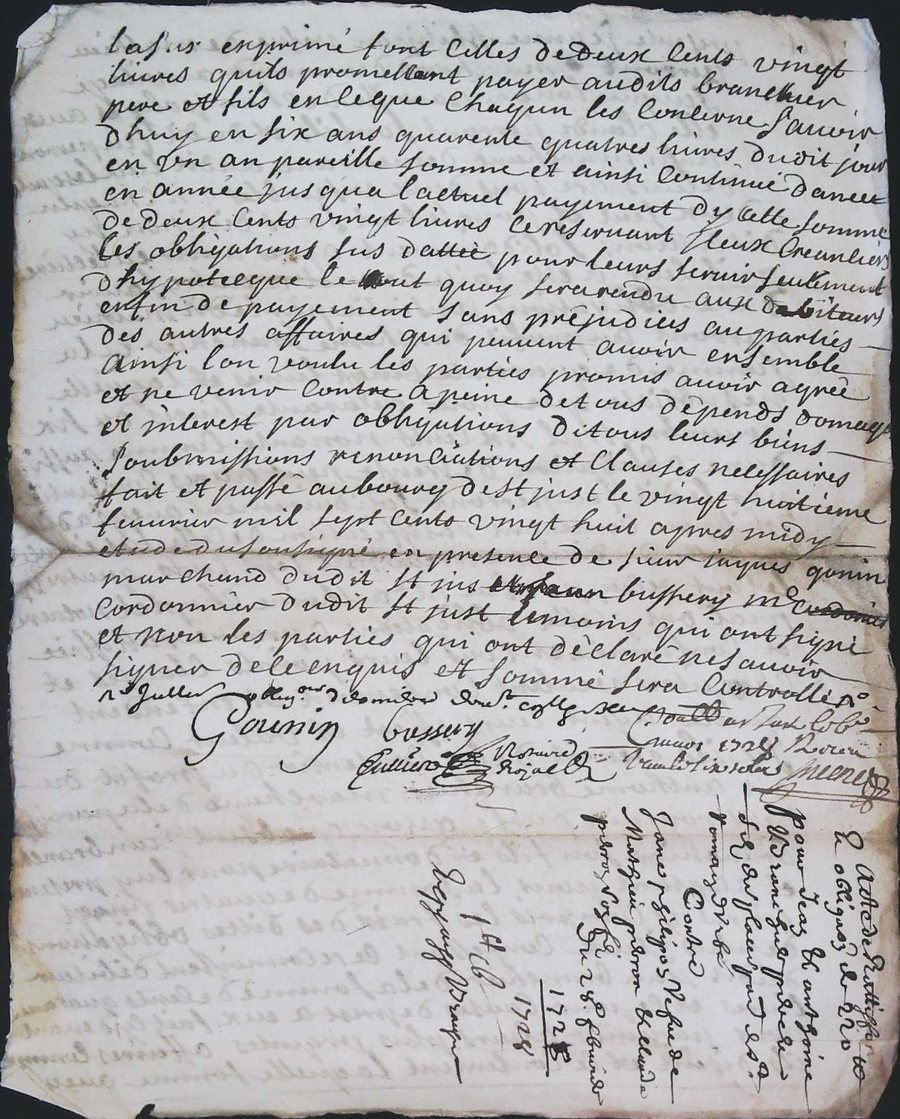 lasus exprimé font celles de deux cents vingt
livres quils promettent payer audits branchier
pere et fils en ce que chaqun les concerne sauoir
dhuy en six ans quarente quatres livres dudit jour
en un an pareille somme et ainsi continué danéé
en année jusqua lactuel payement dy celle somme
de deux cents vingt livres ce reservant yceux creanciers
les obligations sus dattéé pour leurs servir seulement
dhypotecque le tout quoy sera rendu aux debiteurs
en fin de payement sans préjudices au parties
des autres affaires qui peuvent avoir ensemble
ainsi lon voulu les parties promis avoir agréé
et ne venir contre a peine de tous dépends domages
et interest par obligations de tous leurs biens
soubmissions renonciations et clauses necessaires
fait et passé au bourg de st just le vingt huitieme
fevrier mil sept cents vingt huit apres midy
etude du sousigné en presence de sieur jaques gonin
marchand dudit st jus bussery me
cordonnier dudit st just temoins qui ont signé
et non les parties qui ont déclaré ne sauoir
signer de ce enquis et sommé sera controllé
Gounin bussery
Notaire
Royal
mars 1728
acte de
obligaõn de 220
pour Jean & antoine
pere &
fils
Contre
Jane philipon vefue de
Mathieu & claude
du 28e febvrier
1728
1728